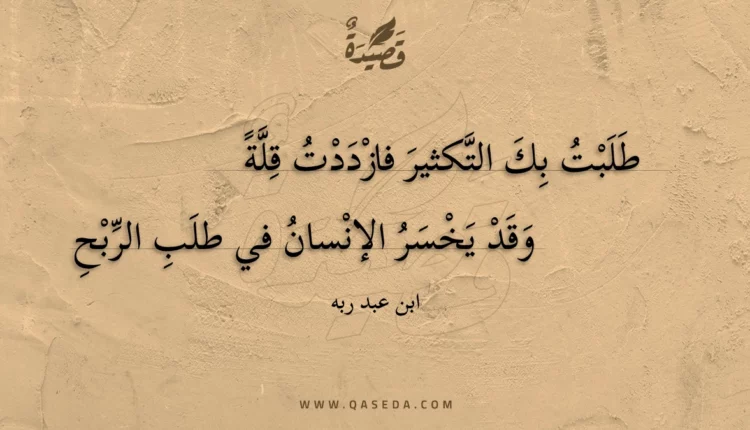 قَصِيدَةٌ
طَلَبْتُ بِكَ التَّكثيرَ فازْدَدْتُ قِلَّةً
وَقَدْ يَخْسَرُ الإنْسانُ في طلَبِ الرِّبْحِ
ابن عبد ربه
WWW.QASEDA.COM